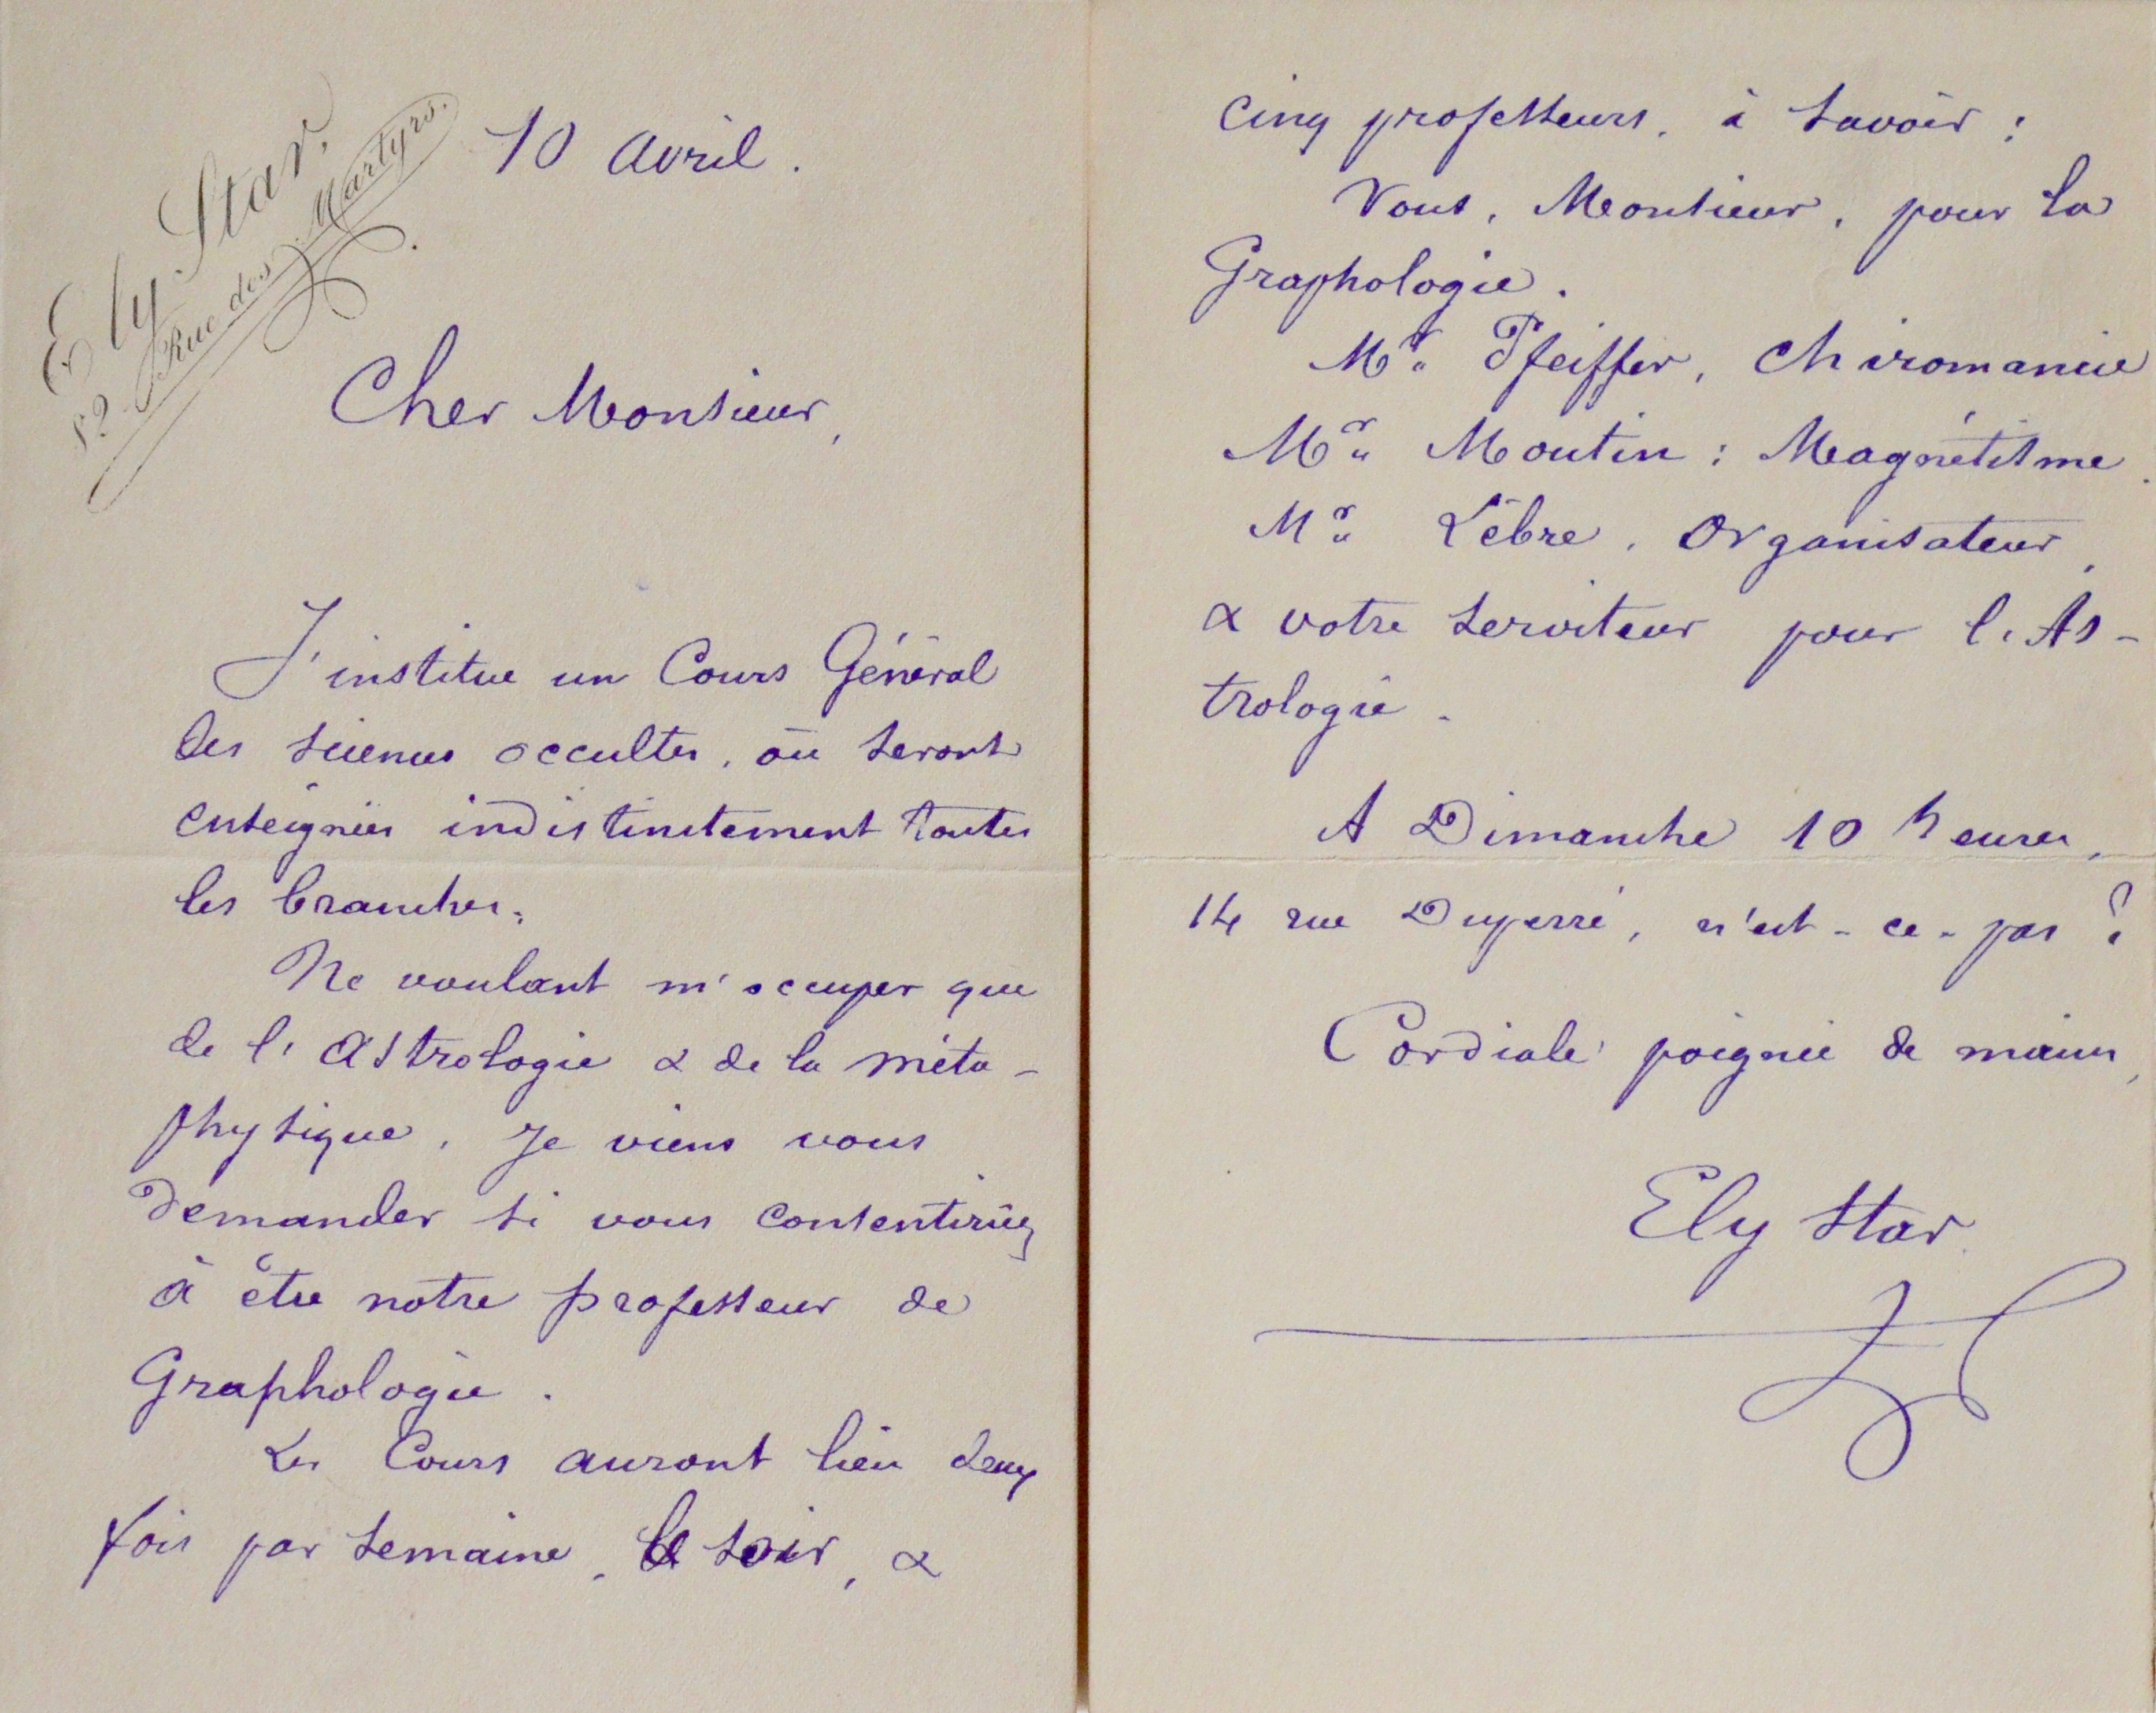 Ely Star.
52 Rue des Martyrs.
10 avril.
Cher Monsieur,
J'institue un Cours Général
des sciences occultes, où seront
enseignées indistinctement toutes
les branches.
Ne voulant m'occuper que
de l'astrologie & de la méta-
physique, je viens vous
demander si vous consentiriez
à être notre professeur de
Graphologie.
Les Cours auront lieu deux
fois par semaine, le soir, &
cinq professeurs, à savoir :
Vous, Monsieur, pour la
Graphologie.
Mr. Pfeiffer, chiromancie
Mr. Moutin : Magnétisme.
Mr. Lèbre, organisateur,
& votre serviteur pour l'As-
trologie.
A Dimanche 10 heures,
14 rue Duperré, n'est-ce-pas ?
Cordiale poignée de mains,
Ely Star